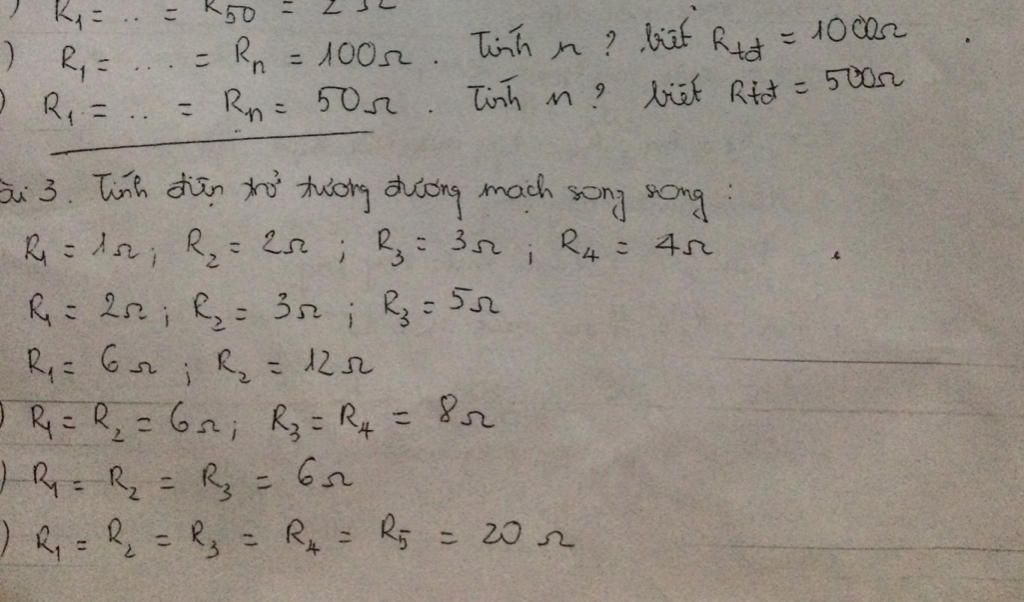 ) R₁ = .. = R₅₀ = 2Ω
) R₁ = .... = Rₙ = 100Ω. Tính n ? biết Rtđ = 1000Ω.
) R₁ = .. = Rₙ = 50Ω. Tính n ? biết Rtđ = 500Ω
ài 3. Tính điện trở tương đương mạch song song :
R₁ = 1Ω ; R₂ = 2Ω ; R₃ = 3Ω ; R₄ = 4Ω
R₁ = 2Ω ; R₂ = 3Ω ; R₃ = 5Ω
R₁ = 6Ω ; R₂ = 12Ω
) R₁ = R₂ = 6Ω ; R₃ = R₄ = 8Ω
) R₁ = R₂ = R₃ = 6Ω
) R₁ = R₂ = R₃ = R₄ = R₅ = 20Ω